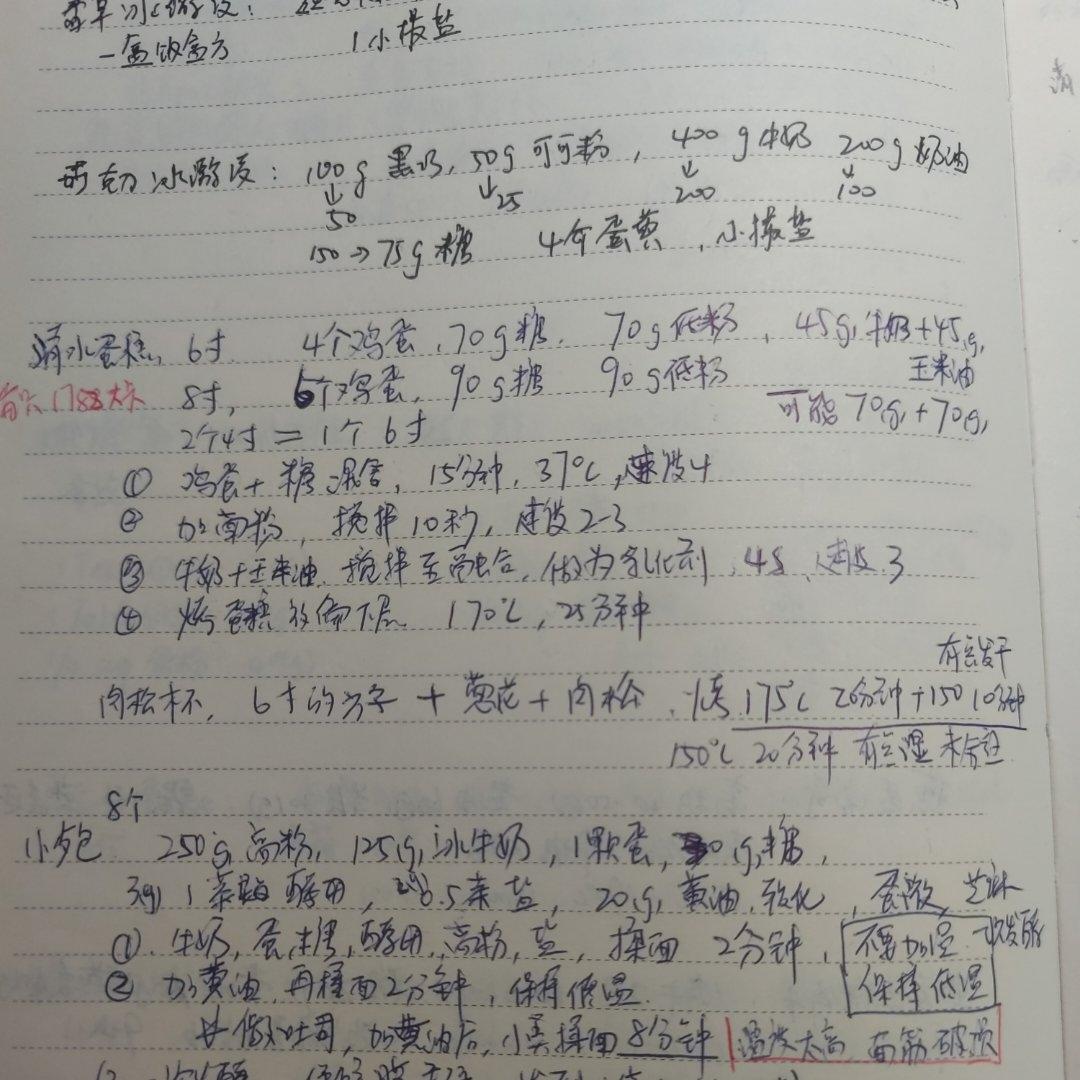 一盒饭盒方 1小撮盐
巧克力冰激凌: 100g黑巧, 50g可可粉, 400g牛奶 200g奶油
↓50 ↓25 ↓200 ↓100
150→75g糖 4个蛋黄, 小撮盐
清水蛋糕, 6寸 4个鸡蛋, 70g糖, 70g低粉, 45g牛奶+45g,
玉米油
8寸, 6个鸡蛋, 90g糖 90g低粉
可能70g+70g,
2个4寸=1个6寸
① 鸡蛋+糖混合, 15分钟, 37℃, 速度4
② 加面粉, 搅拌10秒, 速度2-3
③ 牛奶+玉米油, 搅拌至融合, 做为乳化剂, 4s, 速度3
④ 烤蛋糕放偏下层 170℃, 25分钟
有点发干
肉松杯, 6寸的方子+葱花+肉松, 烤175℃ 20分钟+150 10分钟
150℃ 20分钟 有点湿
8个
小包 250g高粉, 125g冰牛奶, 1颗蛋, g糖,
3g 1茶匙酵母, 0.5茶盐, 20g黄油软化, 蛋液, 芝麻
① 牛奶,蛋,糖,酵母,高粉,盐, 揉面 2分钟, 不要加温
保持低温
② 加黄油,再揉面2分钟, 保持低温
做吐司, 加黄油后, 揉面8分钟 温度太高, 面筋破损